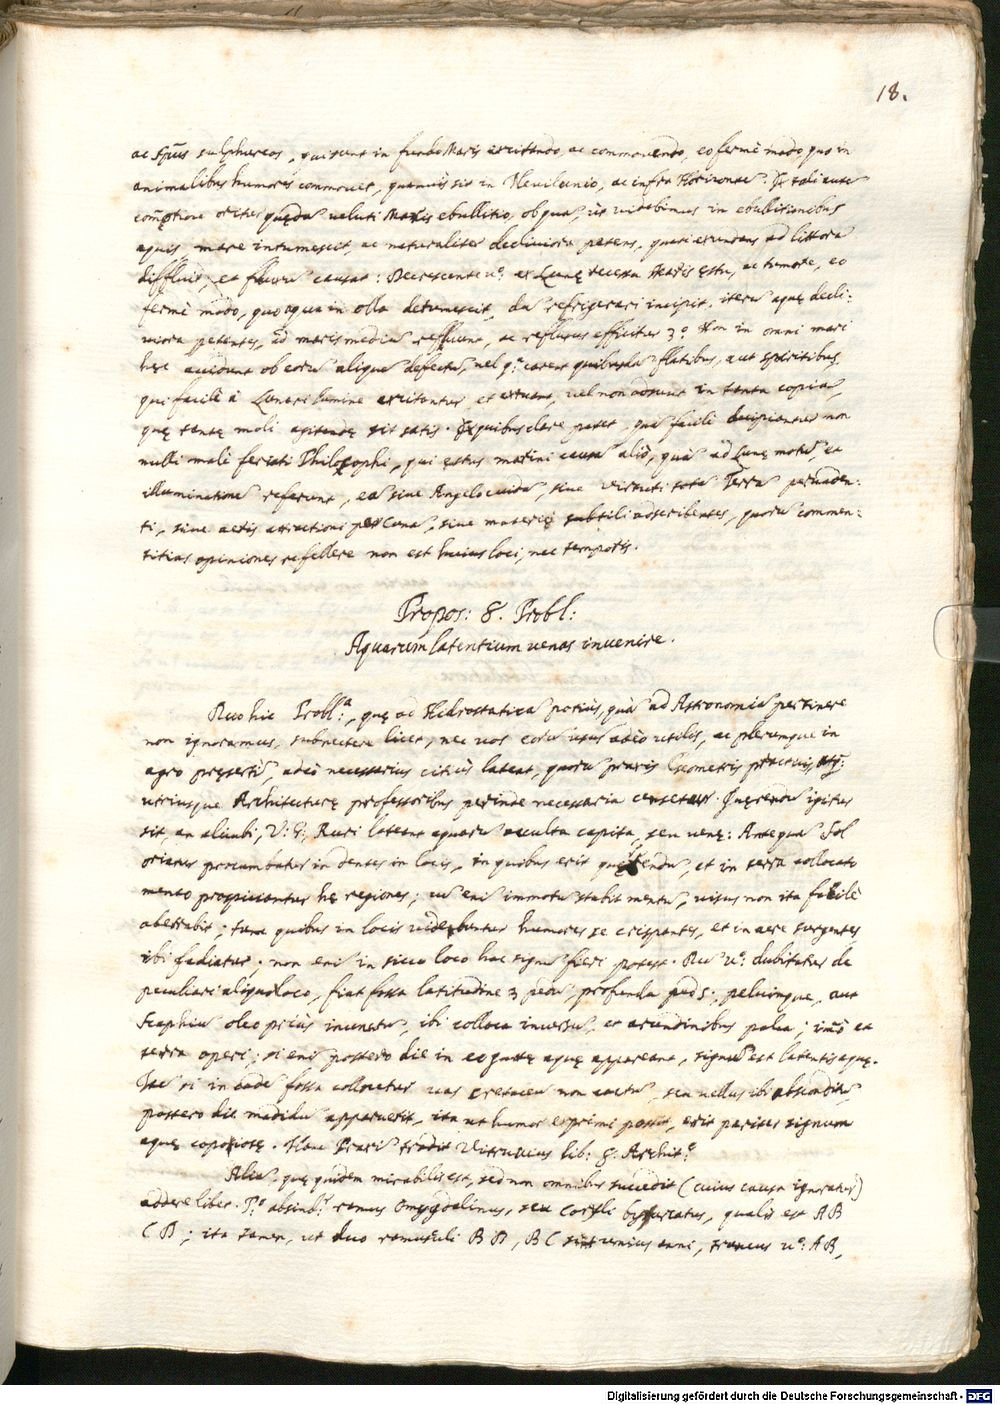 18.
ac spūs sulphureos, qui sunt in fundo Maris excitando, ac commovendo, eo fermè modo quo in
animalibus humores commovet, quamvis sit in Nevilunio, ac infra Horizonte. Ex tali aute
comōtione oritur quęda veluti Maris ebullitio, ob qua, ut videbimus in ebullitionibus
aquis mare intumescit, ac naturaliter decliviora petens, quasi exundans ad littora
diffluit, et fluxu causat: Decrescente v.º ex Lunę recessu Maris ęstu, ac tumore, eo
fermè modo, quo aqua in olla detumescit, du refrigerari incipit, iteru aquę decli:
viora petentes, ad maris mediu refluunt, ac refluxus efficitur 3.º Non in omni mari
hęc accidunt ob eoru alique defectu, vel q.ª carent quibusda flatibus, aut spiritibus,
qui facilè à Lunari lumine excitantur, et extuant, vel non adsunt in tanta copia,
quę tantę moli agitandę sit satis. Ex quibus clare patet, qua facilè decipiantur non
nulli malè feriati Philosophi, qui ęstus marini causa aliò, quà ad Lunę motu, et
illuminatione referunt, ea sive Angelo cuida, sive virtuti totà Terra pervaden:
ti, sive aeris attractioni per Luna, sive materię subtili adscribentes, quoru commen:
titias opiniones refellere non est huius loci, nec temporis.
Propos: 8. Probl:
Aquarum latentium venas invenire.
Huc hic Probl:ª, quę ad Hidrostatica potius, quà ad Astronomia pertinere
non ignoramus, subnectere licet, nec vos eoru usus adeò utilis, ac plerumque in
agro pręserti, adeò necessarius civis lateat, quoru praxis Geometris practicis, atq:
utriusque Architecturę professoribus perinde necessaria censetur. Quęrendu igitur
sit, an alicubi, V: G: Ruri lateant aquaru occulta capita, seu venę: Antequa Sol
oriatur procumbatur in dentes in locis, in quibus erit quęrendu, et in terra collocato
mento prospiciantur hę regiones; cu eni immotu stabit mentu, visus non ita facilè
aberrabit; tunc quibus in locis videbuntur humores se crispantes, et in aere surgentes,
ibi fodiatur. non eni in sicco loco hoc signu fieri potest. Cu v.º dubitatur de
peculiari aliquo loco, fiat fossa latitudine 3 pedu, profunda ped 5:, pelvimque, aut
scaphiu oleo priùs inunctu, ibi colloca inversu, et arundinibus palea; imò et
terra operi; si eni postero die in eo guttę aquę appareant, signu est latentis aquę.
Itac si in eade fossa collocetur vas cretaceu non coctu, seu vellus ibi absconditu
postero die madidu apparuerit, ita ut humor exprimi possit, erit pariter signum
aquę copiosę. Hanc Praxi tradit Vitruvius lib: 8. Archit.ª
Alia, quę quidem mirabilis est, sed non omnibus succedit (cuius causa ignoratur)
addere libet. P.º absind.r ramus Amygdalinus, seu Coryli bifurcatus, qualis est AB
CD; ita tamen, ut duo ramusculi BD, BC sint unius anni, truncus v.º: AB,
Digitalisierung gefördert durch die Deutsche Forschungsgemeinschaft - DFG